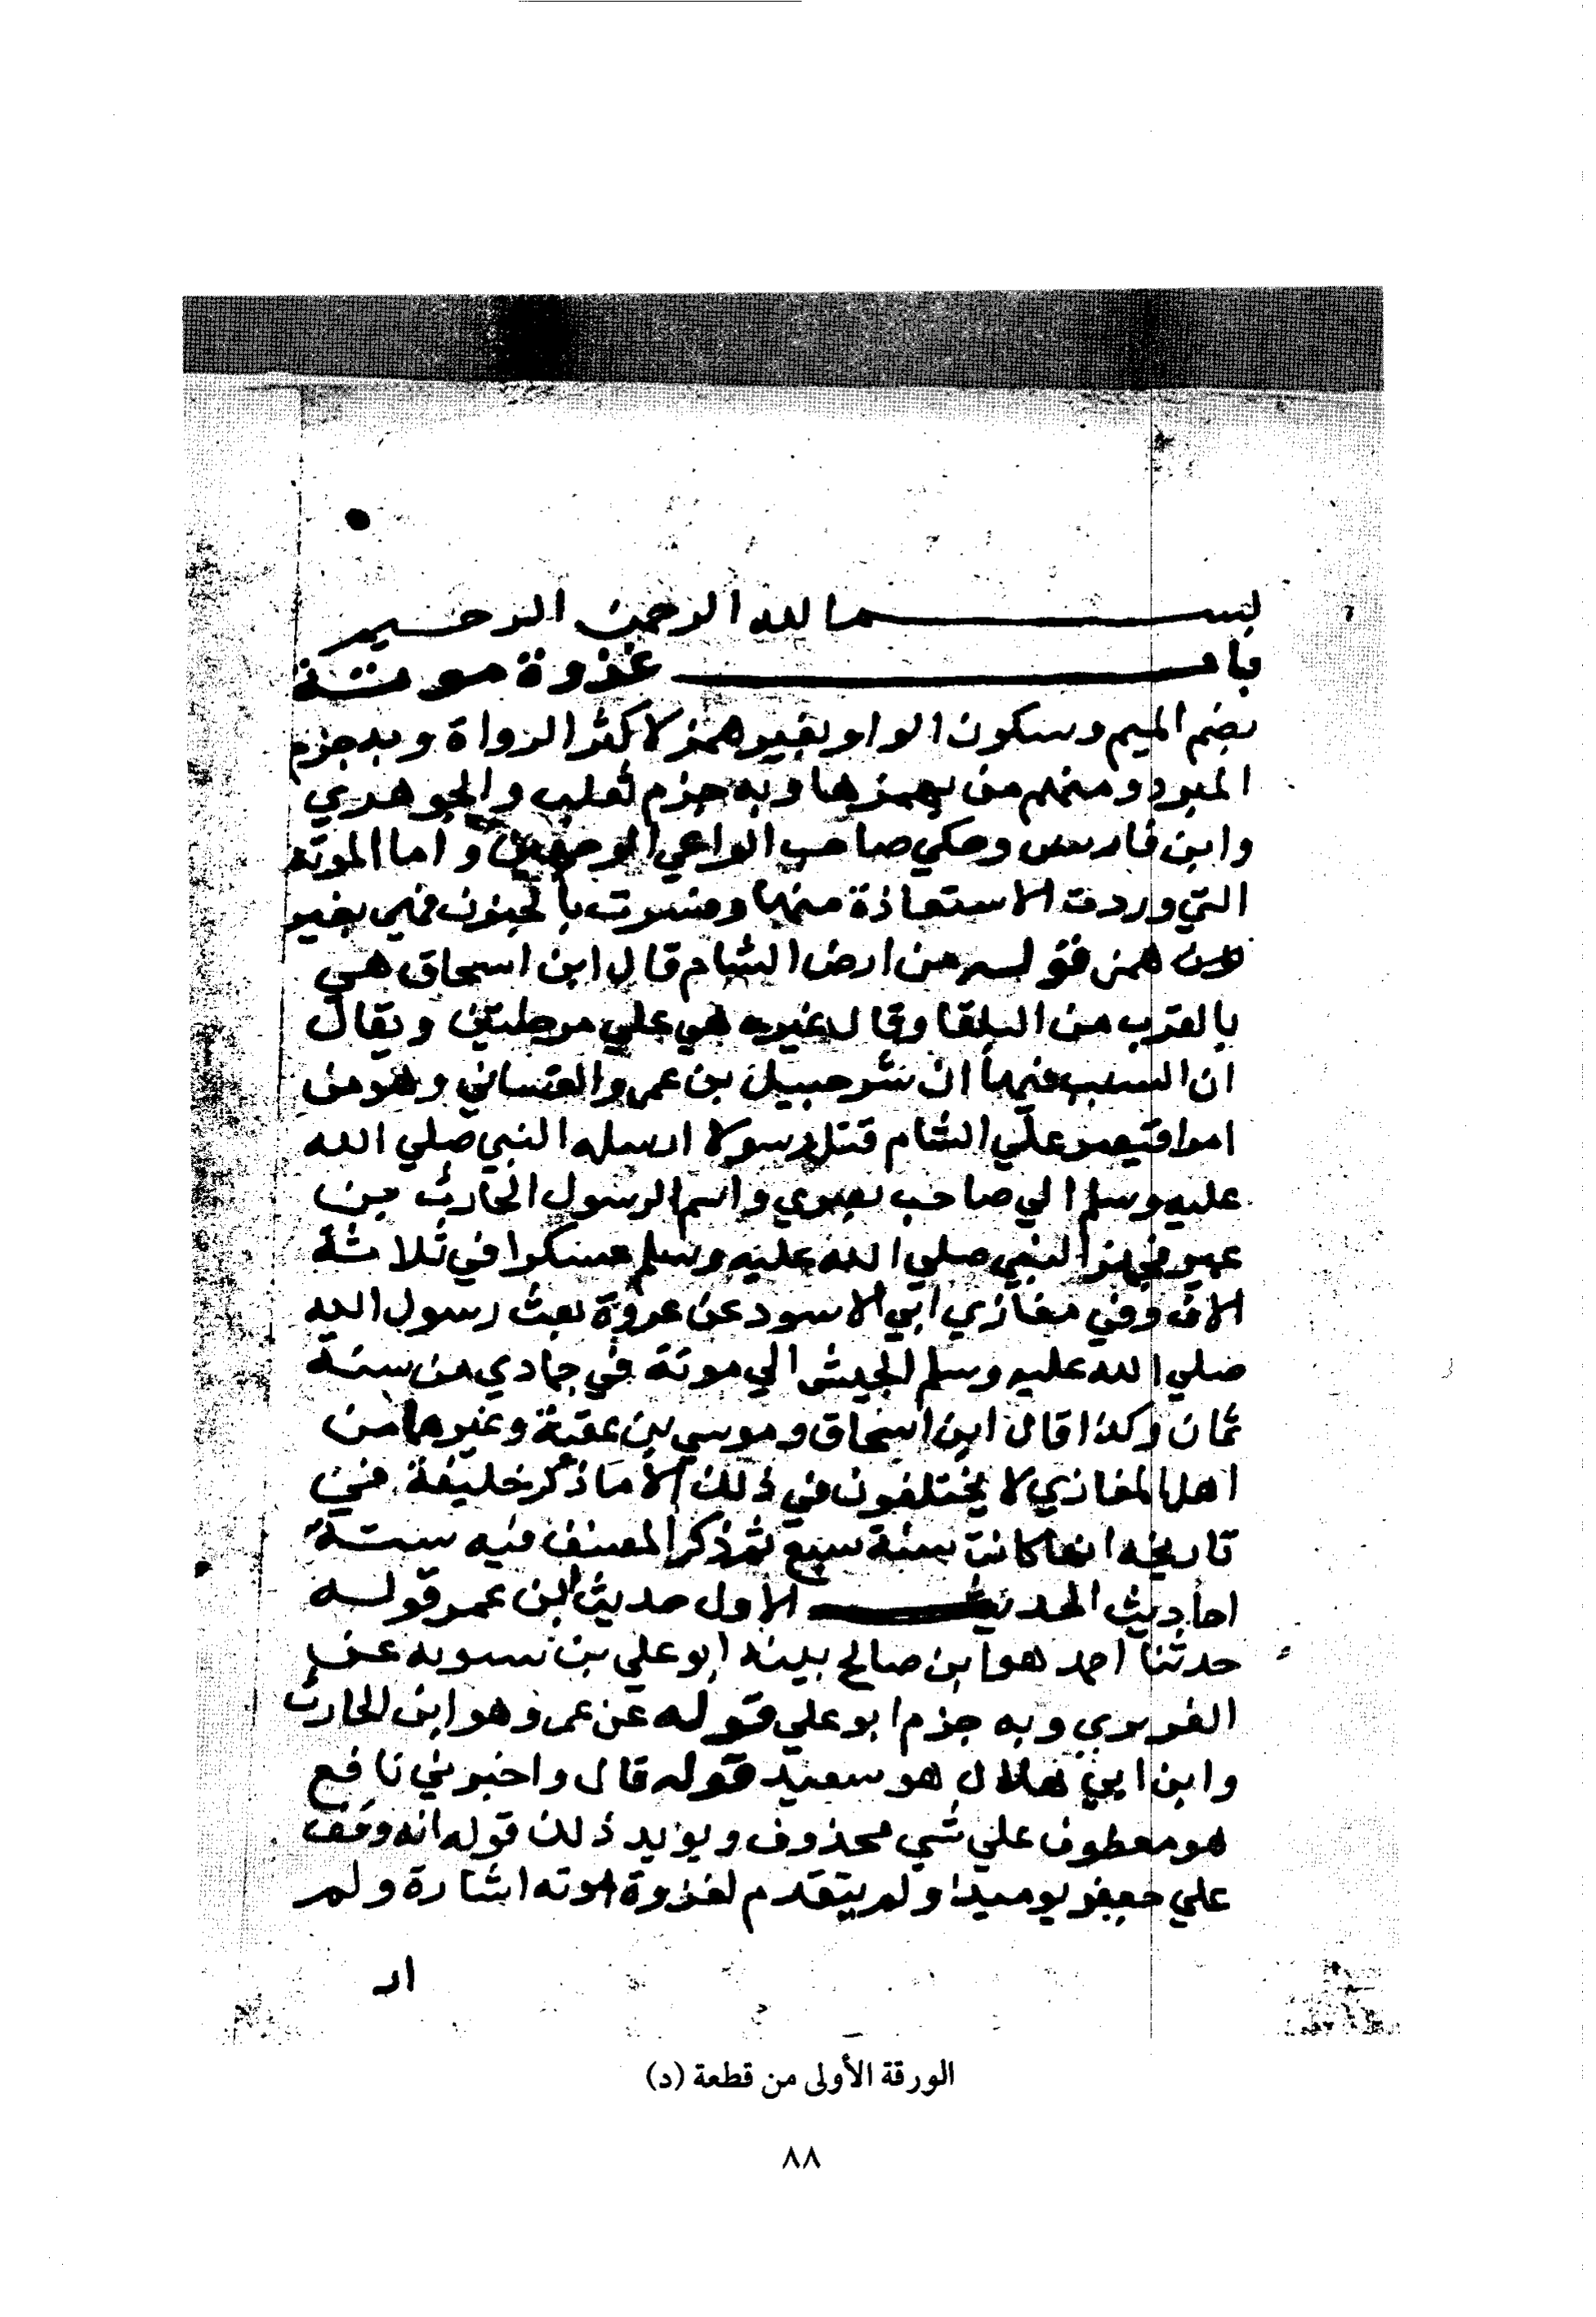 بسم الله الرحمن الرحيم
باب غزوة موتة
بضم الميم وسكون الواو بغير همز لاكثر الرواة وبه جزم
المبرد ومنهم من يهمزها وبه جزم ثعلب والجوهري
وابن فارس وحكي صاحب الواعي الوجهين واما الموتة
التي وردت الاستعاذة منها وفسرت بالجنون فهي بغير
همز قوله من ارض الشام قال ابن اسحاق هي
بالقرب من البلقا وقال غيره هي علي مرحلتين ويقال
ان السبب فيها ان شرحبيل بن عمرو الغساني وهو من
امرا قيصر علي الشام قتل رسولا ارسله النبي صلي الله
عليه وسلم الي صاحب بصري واسم الرسول الحارث بن
عمير فجهز النبي صلي الله عليه وسلم عسكرا في ثلاثة
الاف وفي مغازي ابي الاسود عن عروة بعث رسول الله
صلي الله عليه وسلم الجيش الي موتة في جمادي من سنة
ثمان وكذا قال ابن اسحاق وموسي بن عقبة وغيرهما من
اهل المغازي لا يختلفون في ذلك الا ما ذكر خليفة في
تاريخه انها كانت سنة سبع ثم ذكر المصنف فيه ستة
احاديث الحديث الاول حديث ابن عمر قوله
حدثنا احمد هو ابن صالح بينه ابو علي بن شبويه عن
الفربري وبه جزم ابو علي قوله عن عمرو هو ابن الحارث
وابن ابي هلال هو سعيد قوله قال واخبرني نافع
هو معطوف علي شي محذوف ويويد ذلك قوله انه وقف
علي جعفر يوميذ ولم يتقدم لغزوة موته اشارة ولم
ار
الورقة الأولى من قطعة (د)
٨٨